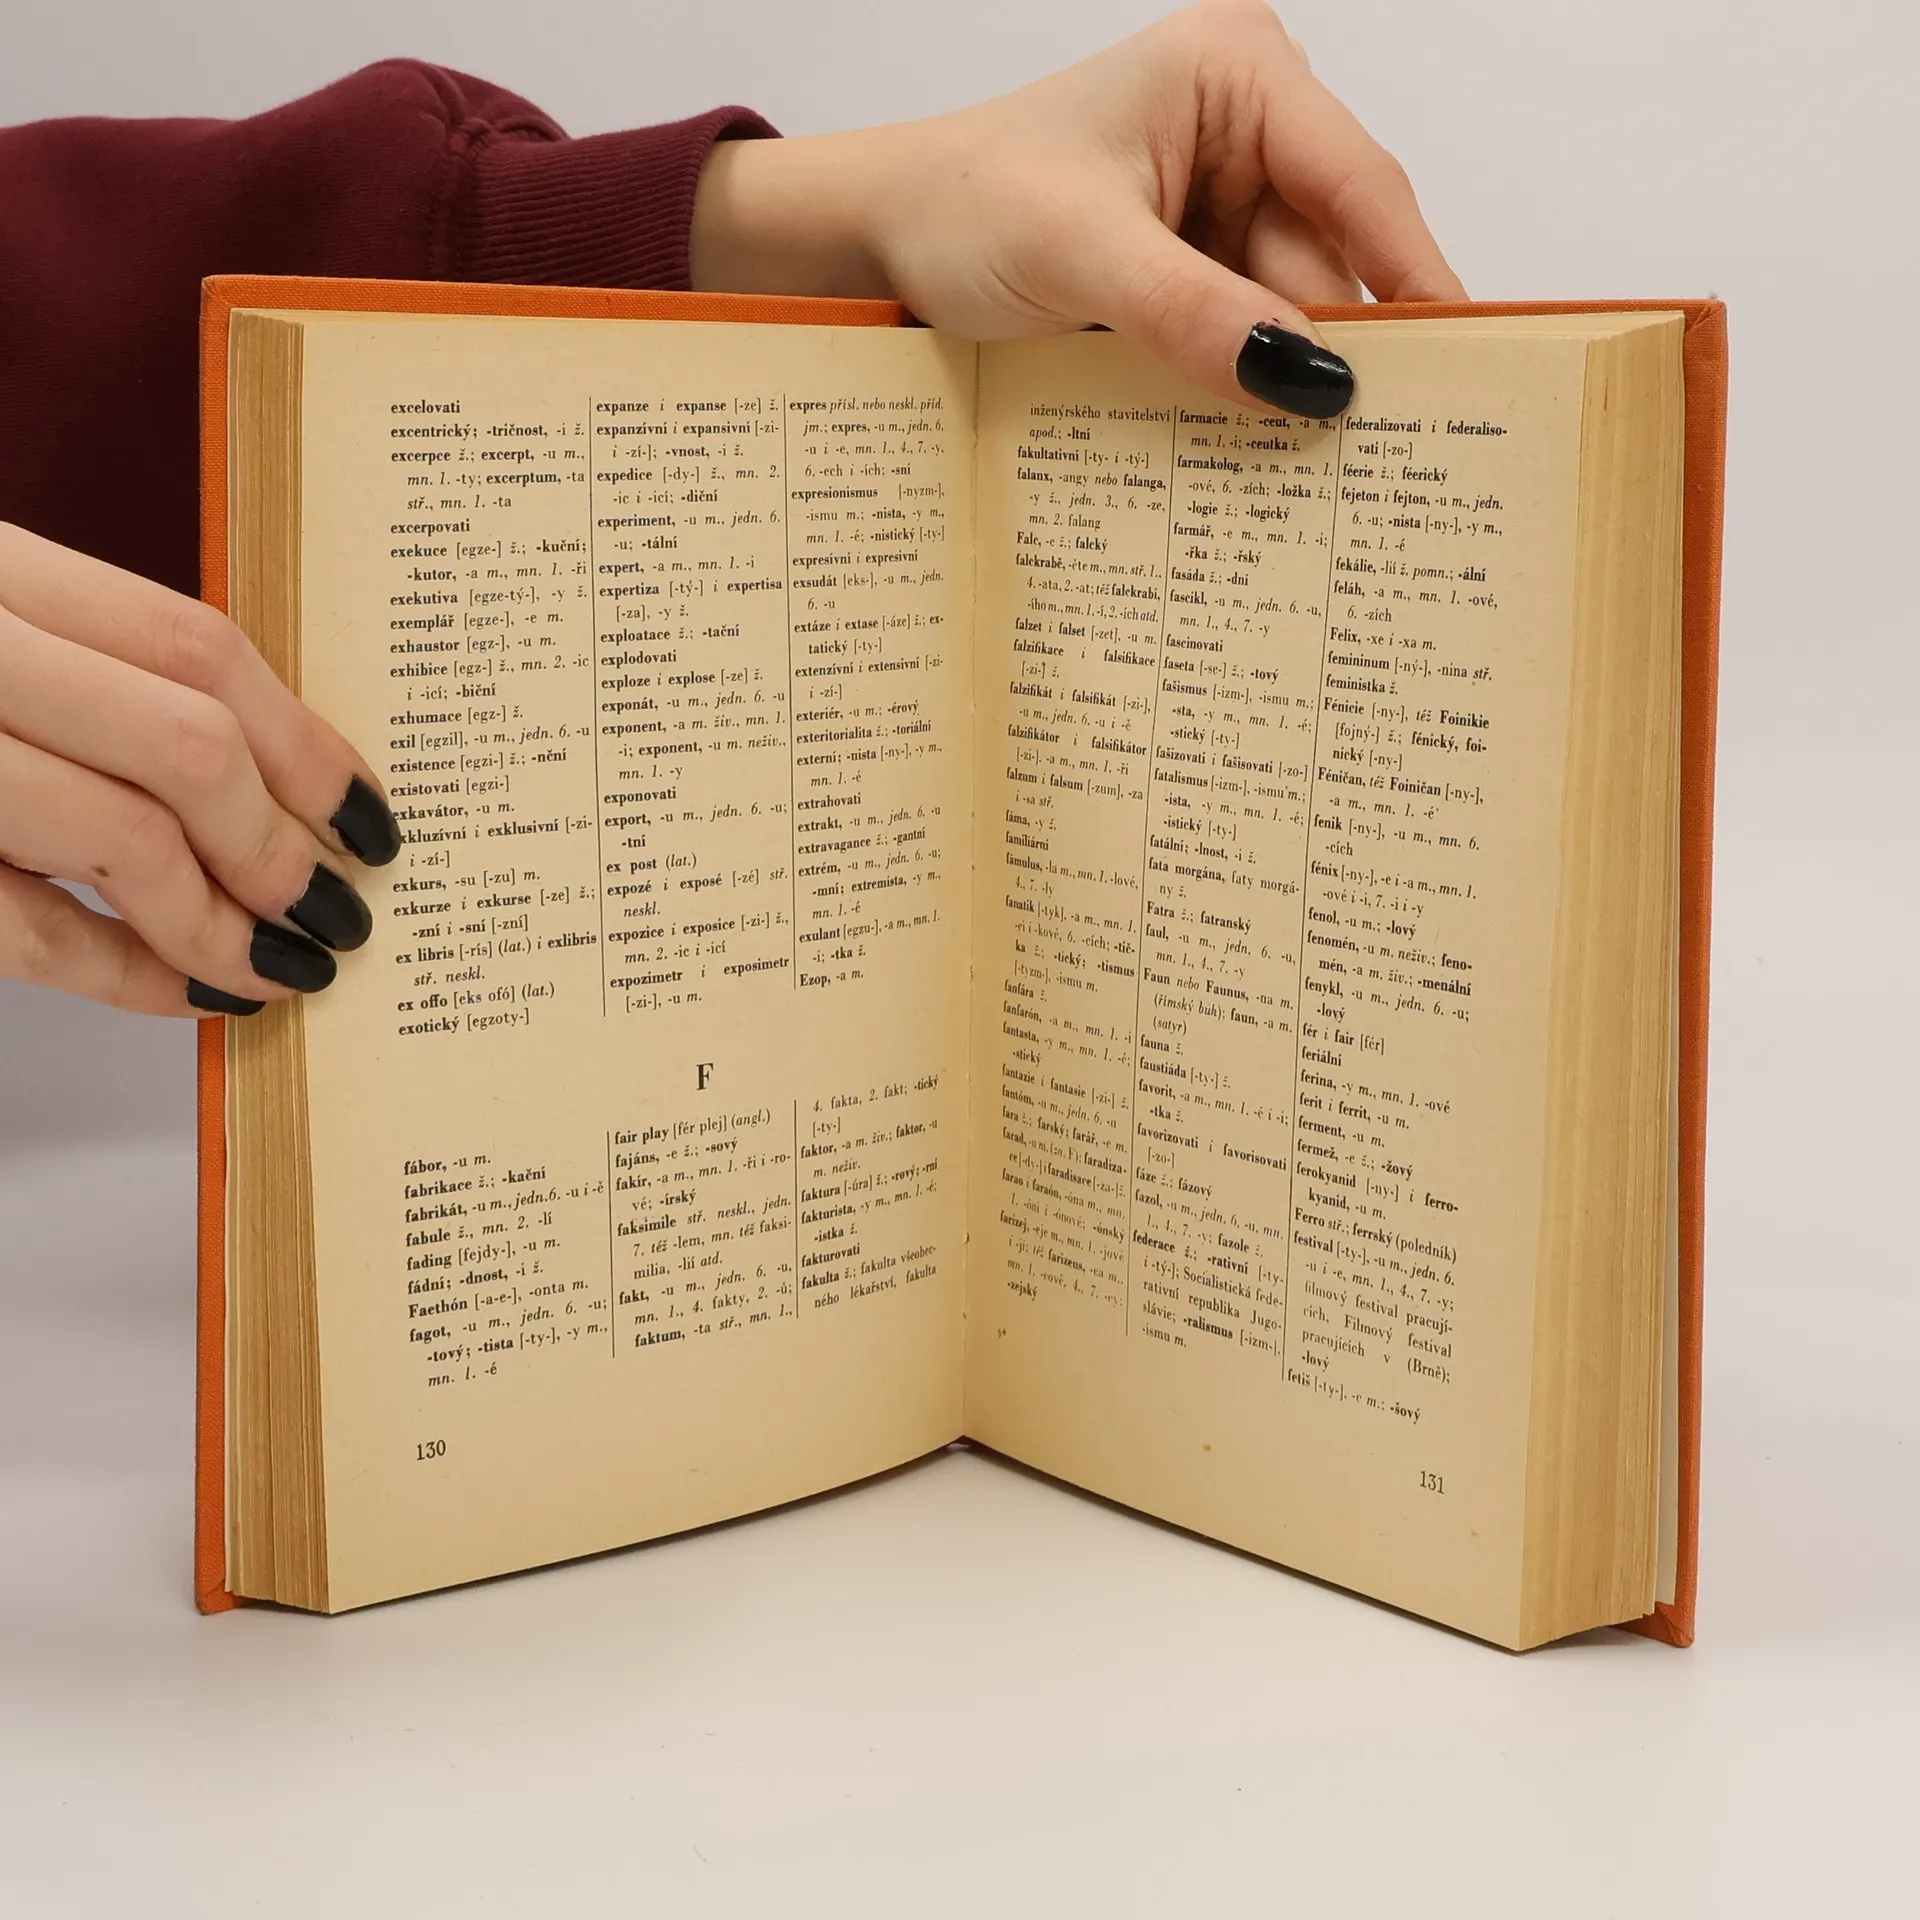 excelovati
excentrický; -tričnost, -i ž.
excerpce ž.; excerpt, -u m.,
mn. 1. -ty; excerptum, -ta
stř., mn. 1. -ta
excerpovati
exekuce [egze-] ž.; -kuční;
-kutor, -a m., mn. 1. -ři
exekutiva [egze-tý-], -y ž.
exemplář [egze-], -e m.
exhaustor [egz-], -u m.
exhibice [egz-] ž., mn. 2. -ic
i -icí; -biční
exhumace [egz-] ž.
exil [egzil], -u m., jedn. 6. -u
existence [egzi-] ž.; -nční
existovati [egzi-]
exkavátor, -u m.
exkluzívní i exklusivní [-zi-
i -zí-]
exkurs, -su [-zu] m.
exkurze i exkurse [-ze] ž.;
-zní i -sní [-zní]
ex libris [-rís] (lat.) i exlibris
stř. neskl.
ex offo [eks ofó] (lat.)
exotický [egzoty-]
expanze i expanse [-ze] ž.
expanzívní i expansivní [-zi-
i -zí-]; -vnost, -i ž.
expedice [-dy-] ž., mn. 2.
-ic i -icí; -diční
experiment, -u m., jedn. 6.
-u; -tální
expert, -a m., mn. 1. -i
expertiza [-tý-] i expertisa
[-za], -y ž.
exploatace ž.; -tační
explodovati
exploze i explose [-ze] ž.
exponát, -u m., jedn. 6. -u
exponent, -a m. živ., mn. 1.
-i; exponent, -u m. neživ.,
mn. 1. -y
exponovati
export, -u m., jedn. 6. -u;
-tní
ex post (lat.)
expozé i exposé [-zé] stř.
neskl.
expozice i exposice [-zi-] ž.,
mn. 2. -ic i -icí
expozimetr i exposimetr
[-zi-], -u m.
expres přísl. nebo neskl. příd.
jm.; expres, -u m., jedn. 6.
-u i -e, mn. 1., 4., 7. -y,
6. -ech i -ích; -sní
expresionismus [-nyzm-],
-ismu m.; -nista, -y m.,
mn. 1. -é; -nistický [-ty-]
expresívní i expresivní
exsudát [eks-], -u m., jedn.
6. -u
extáze i extase [-áze] ž.; ex-
tatický [-ty-]
extenzívní i extensivní [-zi-
i -zí-]
exteriér, -u m.; -érový
exteritorialita ž.; -toriální
externí; -nista [-ny-], -y m.,
mn. 1. -é
extrahovati
extrakt, -u m., jedn. 6. -u
extravagance ž.; -gantní
extrém, -u m., jedn. 6. -u;
-mní; extremista, -y m.,
mn. 1. -é
exulant [egzu-], -a m., mn. 1.
-i; -tka ž.
Ezop, -a m.
F
fábor, -u m.
fabrikace ž.; -kační
fabrikát, -u m., jedn. 6. -u i -ě
fabule ž., mn. 2. -lí
fading [fejdy-], -u m.
fádní; -dnost, -i ž.
Faethón [-a-e-], -onta m.
fagot, -u m., jedn. 6. -u;
-tový; -tista [-ty-], -y m.,
mn. 1. -é
fair play [fér plej] (angl.)
fajáns, -e ž.; -sový
fakír, -a m., mn. 1. -ři i -ro-
vé; -írský
faksimile stř. neskl., jedn.
7. též -lem, mn. též faksi-
milia, -lií atd.
fakt, -u m., jedn. 6. -u,
mn. 1., 4. fakty, 2. -ů;
faktum, -ta stř., mn. 1.,
4. fakta, 2. fakt; -tický
[-ty-]
faktor, -a m. živ.; faktor, -u
m. neživ.
faktura [-úra] ž.; -rový; -rní
fakturista, -y m., mn. 1. -é;
-istka ž.
fakturovati
fakulta ž.; fakulta všeobec-
ného lékařství, fakulta
130
inženýrského stavitelství
apod.; -ltní
fakultativní [-ty- i -tý-]
falanx, -angy nebo falanga,
-y ž., jedn. 3., 6. -ze,
mn. 2. falang
Falc, -e ž.; falcký
falckrabě, -ěte m., mn. stř. 1.,
4. -ata, 2. -at; též falckrabí,
-ího m., mn. 1. -í, 2. -ích atd.
falzet i falset [-zet], -u m.
falzifikace i falsifikace
[-zi-] ž.
falzifikát i falsifikát [-zi-],
-u m., jedn. 6. -u i -ě
falzifikátor i falsifikátor
[-zi-], -a m., mn. 1. -ři
falzum i falsum [-zum], -za
i -sa stř.
fáma, -y ž.
familiární
fámulus, -la m., mn. 1. -lové,
4., 7. -ly
fanatik [-tyk], -a m., mn. 1.
-ci i -kové, 6. -cích; -tič-
ka ž.; -tický; -tismus
[-tyzm-], -ismu m.
fanfára ž.
fanfarón, -a m., mn. 1. -i
fantasta, -y m., mn. 1. -é;
-stický
fantazie i fantasie [-zi-] ž.
fantóm, -u m., jedn. 6. -u
fara ž.; farský; farář, -e m.
farad, -u m. (zn. F); faradiza-
ce [-dy-] i faradisace [-za-] ž.
farao i faraón, -óna m., mn.
1. -óni i -ónové; -ónský
farizej, -eje m., mn. 1. -jové
i -ji; též farizeus, -ea m.,
mn. 1. -eové, 4., 7. -ey;
-zejský
9*
farmacie ž.; -ceut, -a m.,
mn. 1. -i; -ceutka ž.
farmakolog, -a m., mn. 1.
-ové, 6. -zích; -ložka ž.;
-logie ž.; -logický
farmář, -e m., mn. 1. -i;
-řka ž.; -řský
fasáda ž.; -dní
fascikl, -u m., jedn. 6. -u,
mn. 1., 4., 7. -y
fascinovati
faseta [-se-] ž.; -tový
fašismus [-izm-], -ismu m.;
-sta, -y m., mn. 1. -é;
-stický [-ty-]
fašizovati i fašisovati [-zo-]
fatalismus [-izm-], -ismu m.;
-ista, -y m., mn. 1. -é;
-istický [-ty-]
fatální; -lnost, -i ž.
fata morgána, faty morgá-
ny ž.
Fatra ž.; fatranský
faul, -u m., jedn. 6. -u,
mn. 1., 4., 7. -y
Faun nebo Faunus, -na m.
(římský bůh); faun, -a m.
(satyr)
fauna ž.
faustiáda [-ty-] ž.
favorit, -a m., mn. 1. -é i -i;
-tka ž.
favorizovati i favorisovati
[-zo-]
fáze ž.; fázový
fazol, -u m., jedn. 6. -u, mn.
1., 4., 7. -y; fazole ž.
federace ž.; -rativní [-ty-
i -tý-]; Socialistická fede-
rativní republika Jugo-
slávie; -ralismus [-izm-],
-ismu m.
federalizovati i federaliso-
vati [-zo-]
féerie ž.; féerický
fejeton i fejton, -u m., jedn.
6. -u; -nista [-ny-], -y m.,
mn. 1. -é
fekálie, -lií ž. pomn.; -ální
feláh, -a m., mn. 1. -ové,
6. -zích
Felix, -xe i -xa m.
femininum [-ný-], -nina stř.
feministka ž.
Fénicie [-ny-], též Foinikie
[fojný-] ž.; fénický, foi-
nický [-ny-]
Féničan, též Foiničan [-ny-],
-a m., mn. 1. -é
fenik [-ny-], -u m., mn. 6.
-cích
fénix [-ny-], -e i -a m., mn. 1.
-ové i -i, 7. -i i -y
fenol, -u m.; -lový
fenomén, -u m. neživ.; feno-
mén, -a m. živ.; -menální
fenykl, -u m., jedn. 6. -u;
-lový
fér i fair [fér]
feriální
ferina, -y m., mn. 1. -ové
ferit i ferrit, -u m.
ferment, -u m.
fermež, -e ž.; -žový
ferokyanid [-ny-] i ferro-
kyanid, -u m.
Ferro stř.; ferrský (poledník)
festival [-ty-], -u m., jedn. 6.
-u i -e, mn. 1., 4., 7. -y;
filmový festival pracují-
cích, Filmový festival
pracujících v (Brně);
-lový
fetiš [-ty-], -e m.; -šový
131